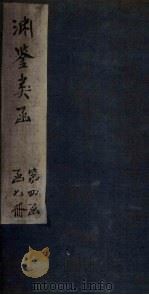 渊鑒类函
第四函
函六冊